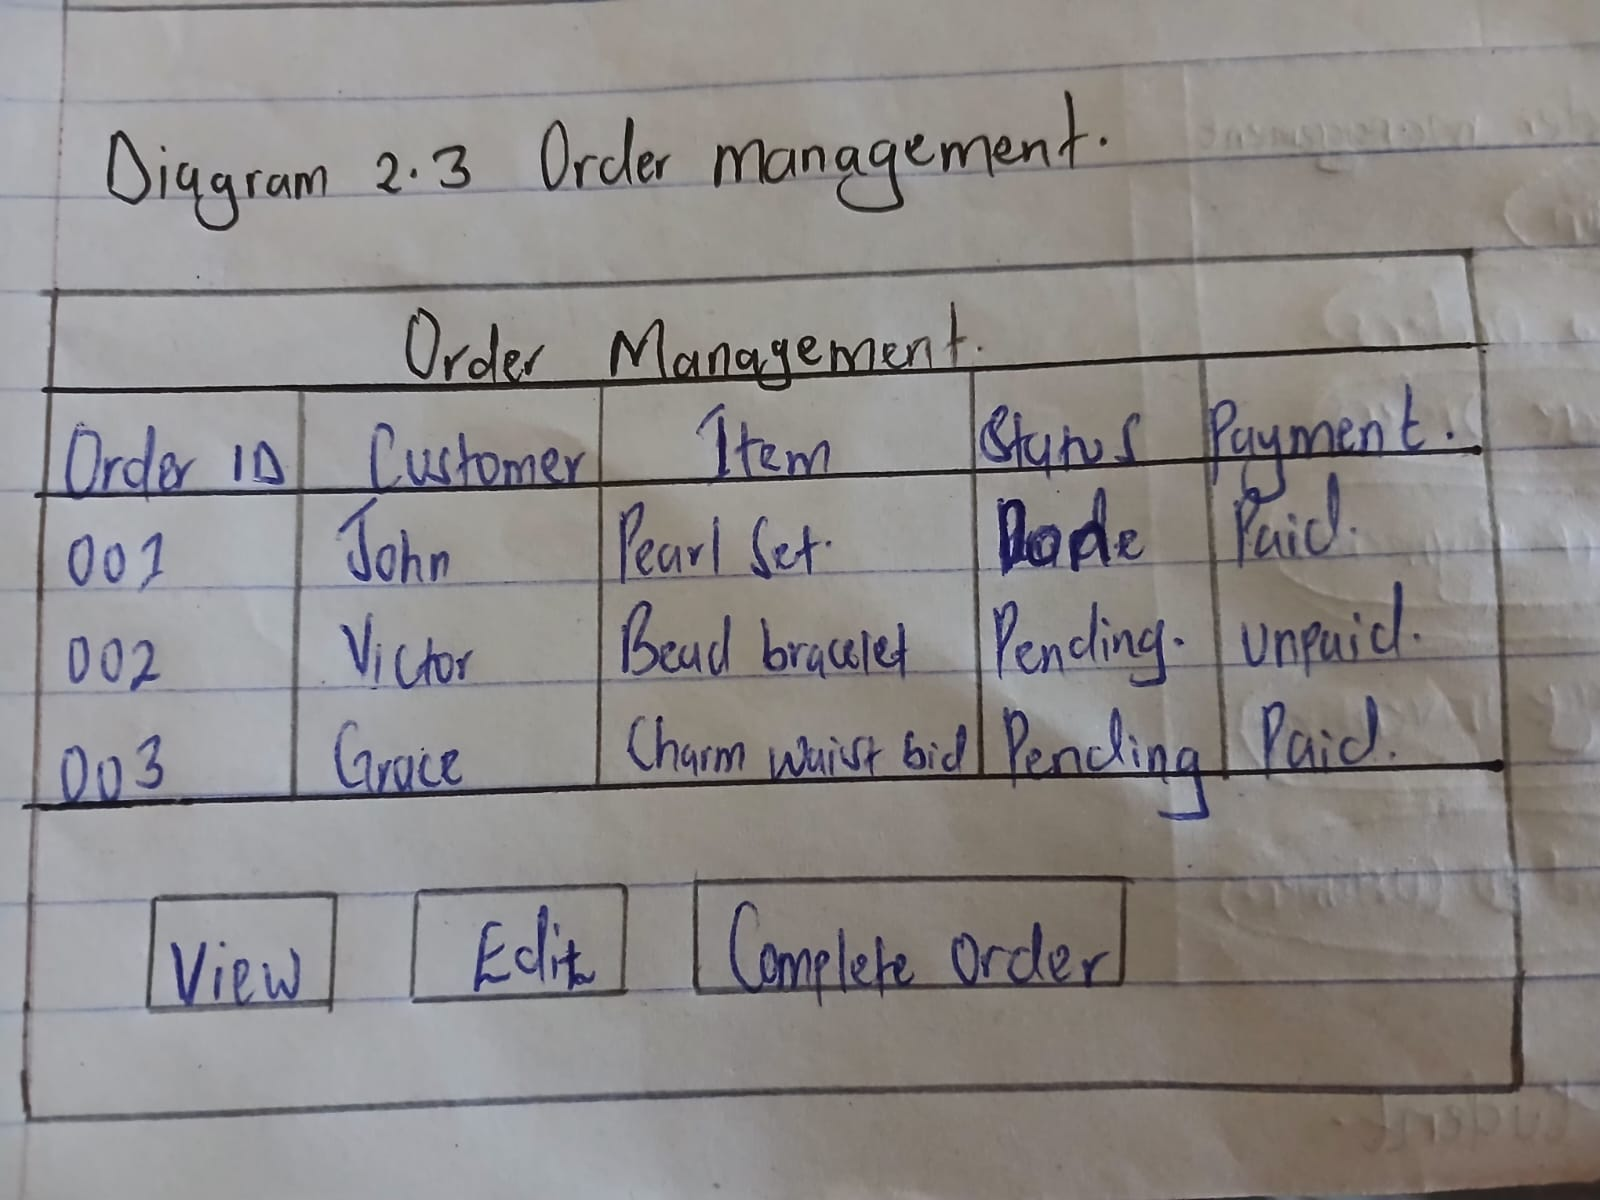 Diagram 2.3 Order management.
Order Management.
Order ID Customer Item Status Payment.
001 John Pearl Set. Paid.
002 Victor Bead bracelet Pending. unpaid.
003 Grace Charm waist bid Pending Paid.
View Edit Complete order